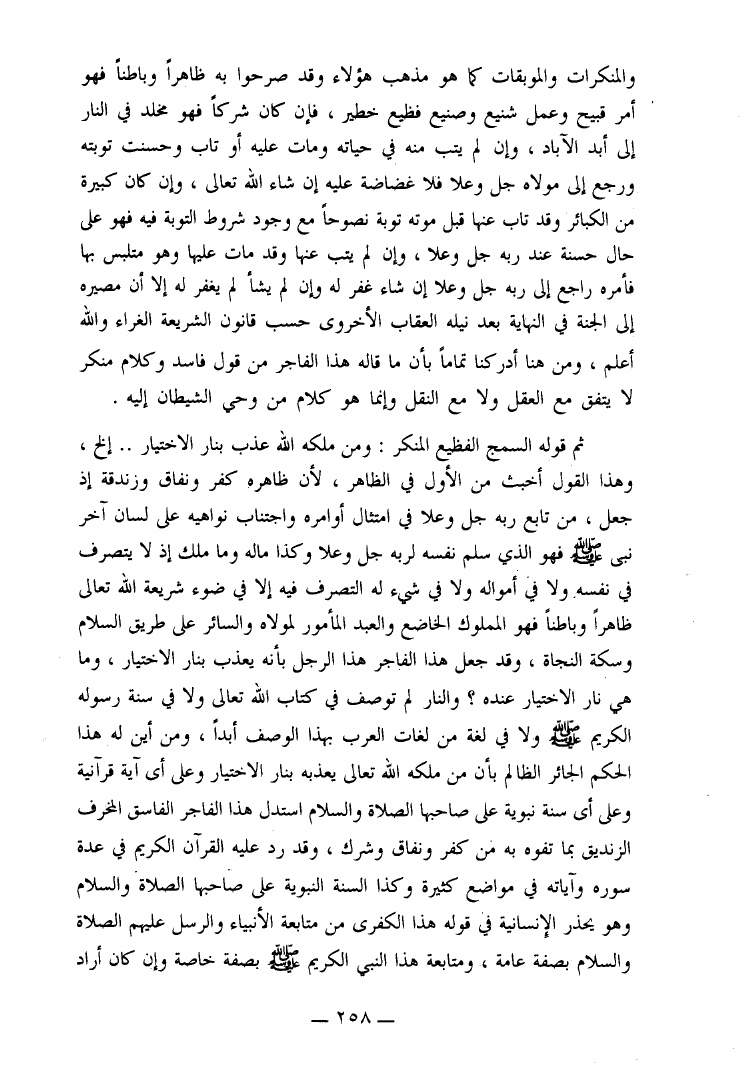 والمنكرات والموبقات كما هو مذهب هؤلاء وقد صرحوا به ظاهراً وباطناً فهو
أمر قبيح وعمل شنيع وصنيع فظيع خطير ، فإن كان شركاً فهو مخلد في النار
إلى أبد الآباد ، وإن لم يتب منه في حياته ومات عليه أو تاب وحسنت توبته
ورجع إلى مولاه جل وعلا فلا غضاضة عليه إن شاء الله تعالى ، وإن كان كبيرة
من الكبائر وقد تاب عنها قبل موته توبة نصوحاً مع وجود شروط التوبة فيه فهو على
حال حسنة عند ربه جل وعلا ، وإن لم يتب عنها وقد مات عليها وهو متلبس بها
فأمره راجع إلى ربه جل وعلا إن شاء غفر له وإن لم يشأ لم يغفر له إلا أن مصيره
إلى الجنة في النهاية بعد نيله العقاب الأخروى حسب قانون الشريعة الغراء والله
أعلم ، ومن هنا أدركنا تماماً بأن ما قاله هذا الفاجر من قول فاسد وكلام منكر
لا يتفق مع العقل ولا مع النقل وإنما هو كلام من وحي الشيطان إليه .
ثم قوله السمج الفظيع المنكر : ومن ملكه الله عذب بنار الاختيار .. إلخ ،
وهذا القول أخبث من الأول في الظاهر ، لأن ظاهره كفر ونفاق وزندقة إذ
جعل ، من تابع ربه جل وعلا في امتثال أوامره واجتناب نواهيه على لسان آخر
نبى ﷺ فهو الذي سلم نفسه لربه جل وعلا وكذا ماله وما ملك إذ لا يتصرف
في نفسه ولا في أمواله ولا في شيء له التصرف فيه إلا في ضوء شريعة الله تعالى
ظاهراً وباطناً فهو المملوك الخاضع والعبد المأمور لمولاه والسائر على طريق السلام
وسكة النجاة ، وقد جعل هذا الفاجر هذا الرجل بأنه يعذب بنار الاختيار ، وما
هي نار الاختيار عنده ؟ والنار لم توصف في كتاب الله تعالى ولا في سنة رسوله
الكريم ﷺ ولا في لغة من لغات العرب بهذا الوصف أبداً ، ومن أين له هذا
الحكم الجائر الظالم بأن من ملكه الله تعالى يعذبه بنار الاختيار وعلى أى آية قرآنية
وعلى أى سنة نبوية على صاحبها الصلاة والسلام استدل هذا الفاجر الفاسق المخرف
الزنديق بما تفوه به من كفر ونفاق وشرك ، وقد رد عليه القرآن الكريم في عدة
سوره وآياته في مواضع كثيرة وكذا السنة النبوية على صاحبها الصلاة والسلام
وهو يحذر الإنسانية في قوله هذا الكفرى من متابعة الأنبياء والرسل عليهم الصلاة
والسلام بصفة عامة ، ومتابعة هذا النبي الكريم ﷺ بصفة خاصة وإن كان أراد
— ٢٥٨ —